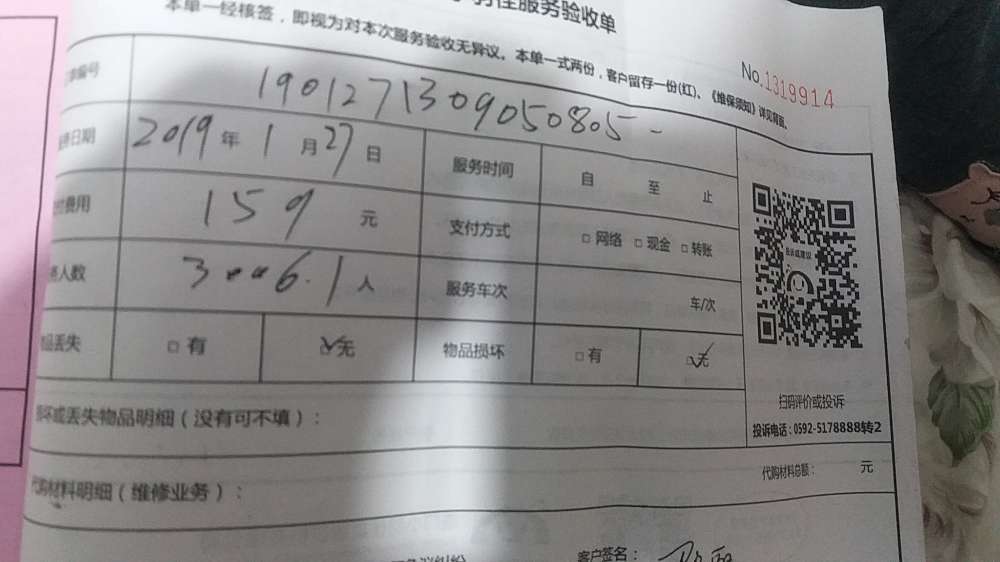 服务验收单
本单一经核签，即视为对本次服务验收无异议。本单一式两份，客户留存一份(红)、《维保须知》详见背面。
No.1319914
编号 190127130905080​5
日期 2019年1月27日 服务时间 自 至 止
费用 159元 支付方式 □网络 □现金 □转账
人数 3006.1人 服务车次 车/次
品丢失 □有 ☑无 物品损坏 □有 ☑无
投诉或建议
扫码评价或投诉
投诉电话：0592-5178888转2
坏或丢失物品明细（没有可不填）：
代购材料明细（维修业务）： 代购材料总额： 元
客户签名：